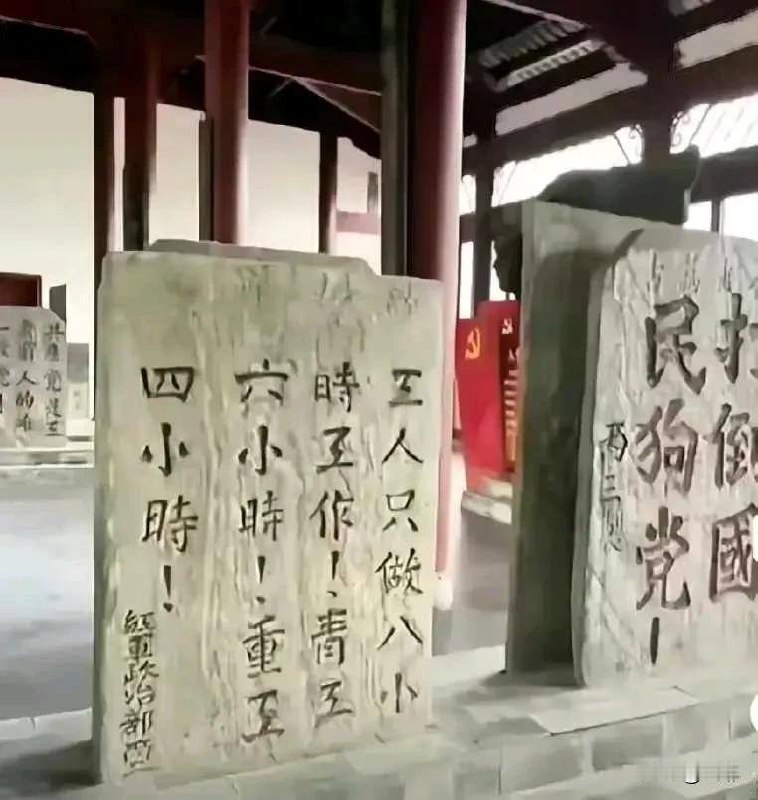 工人只做八小
時工作！青工
六小時！重工
四小時！
政治部
打倒國
民狗党！
共產党是工
人的唯